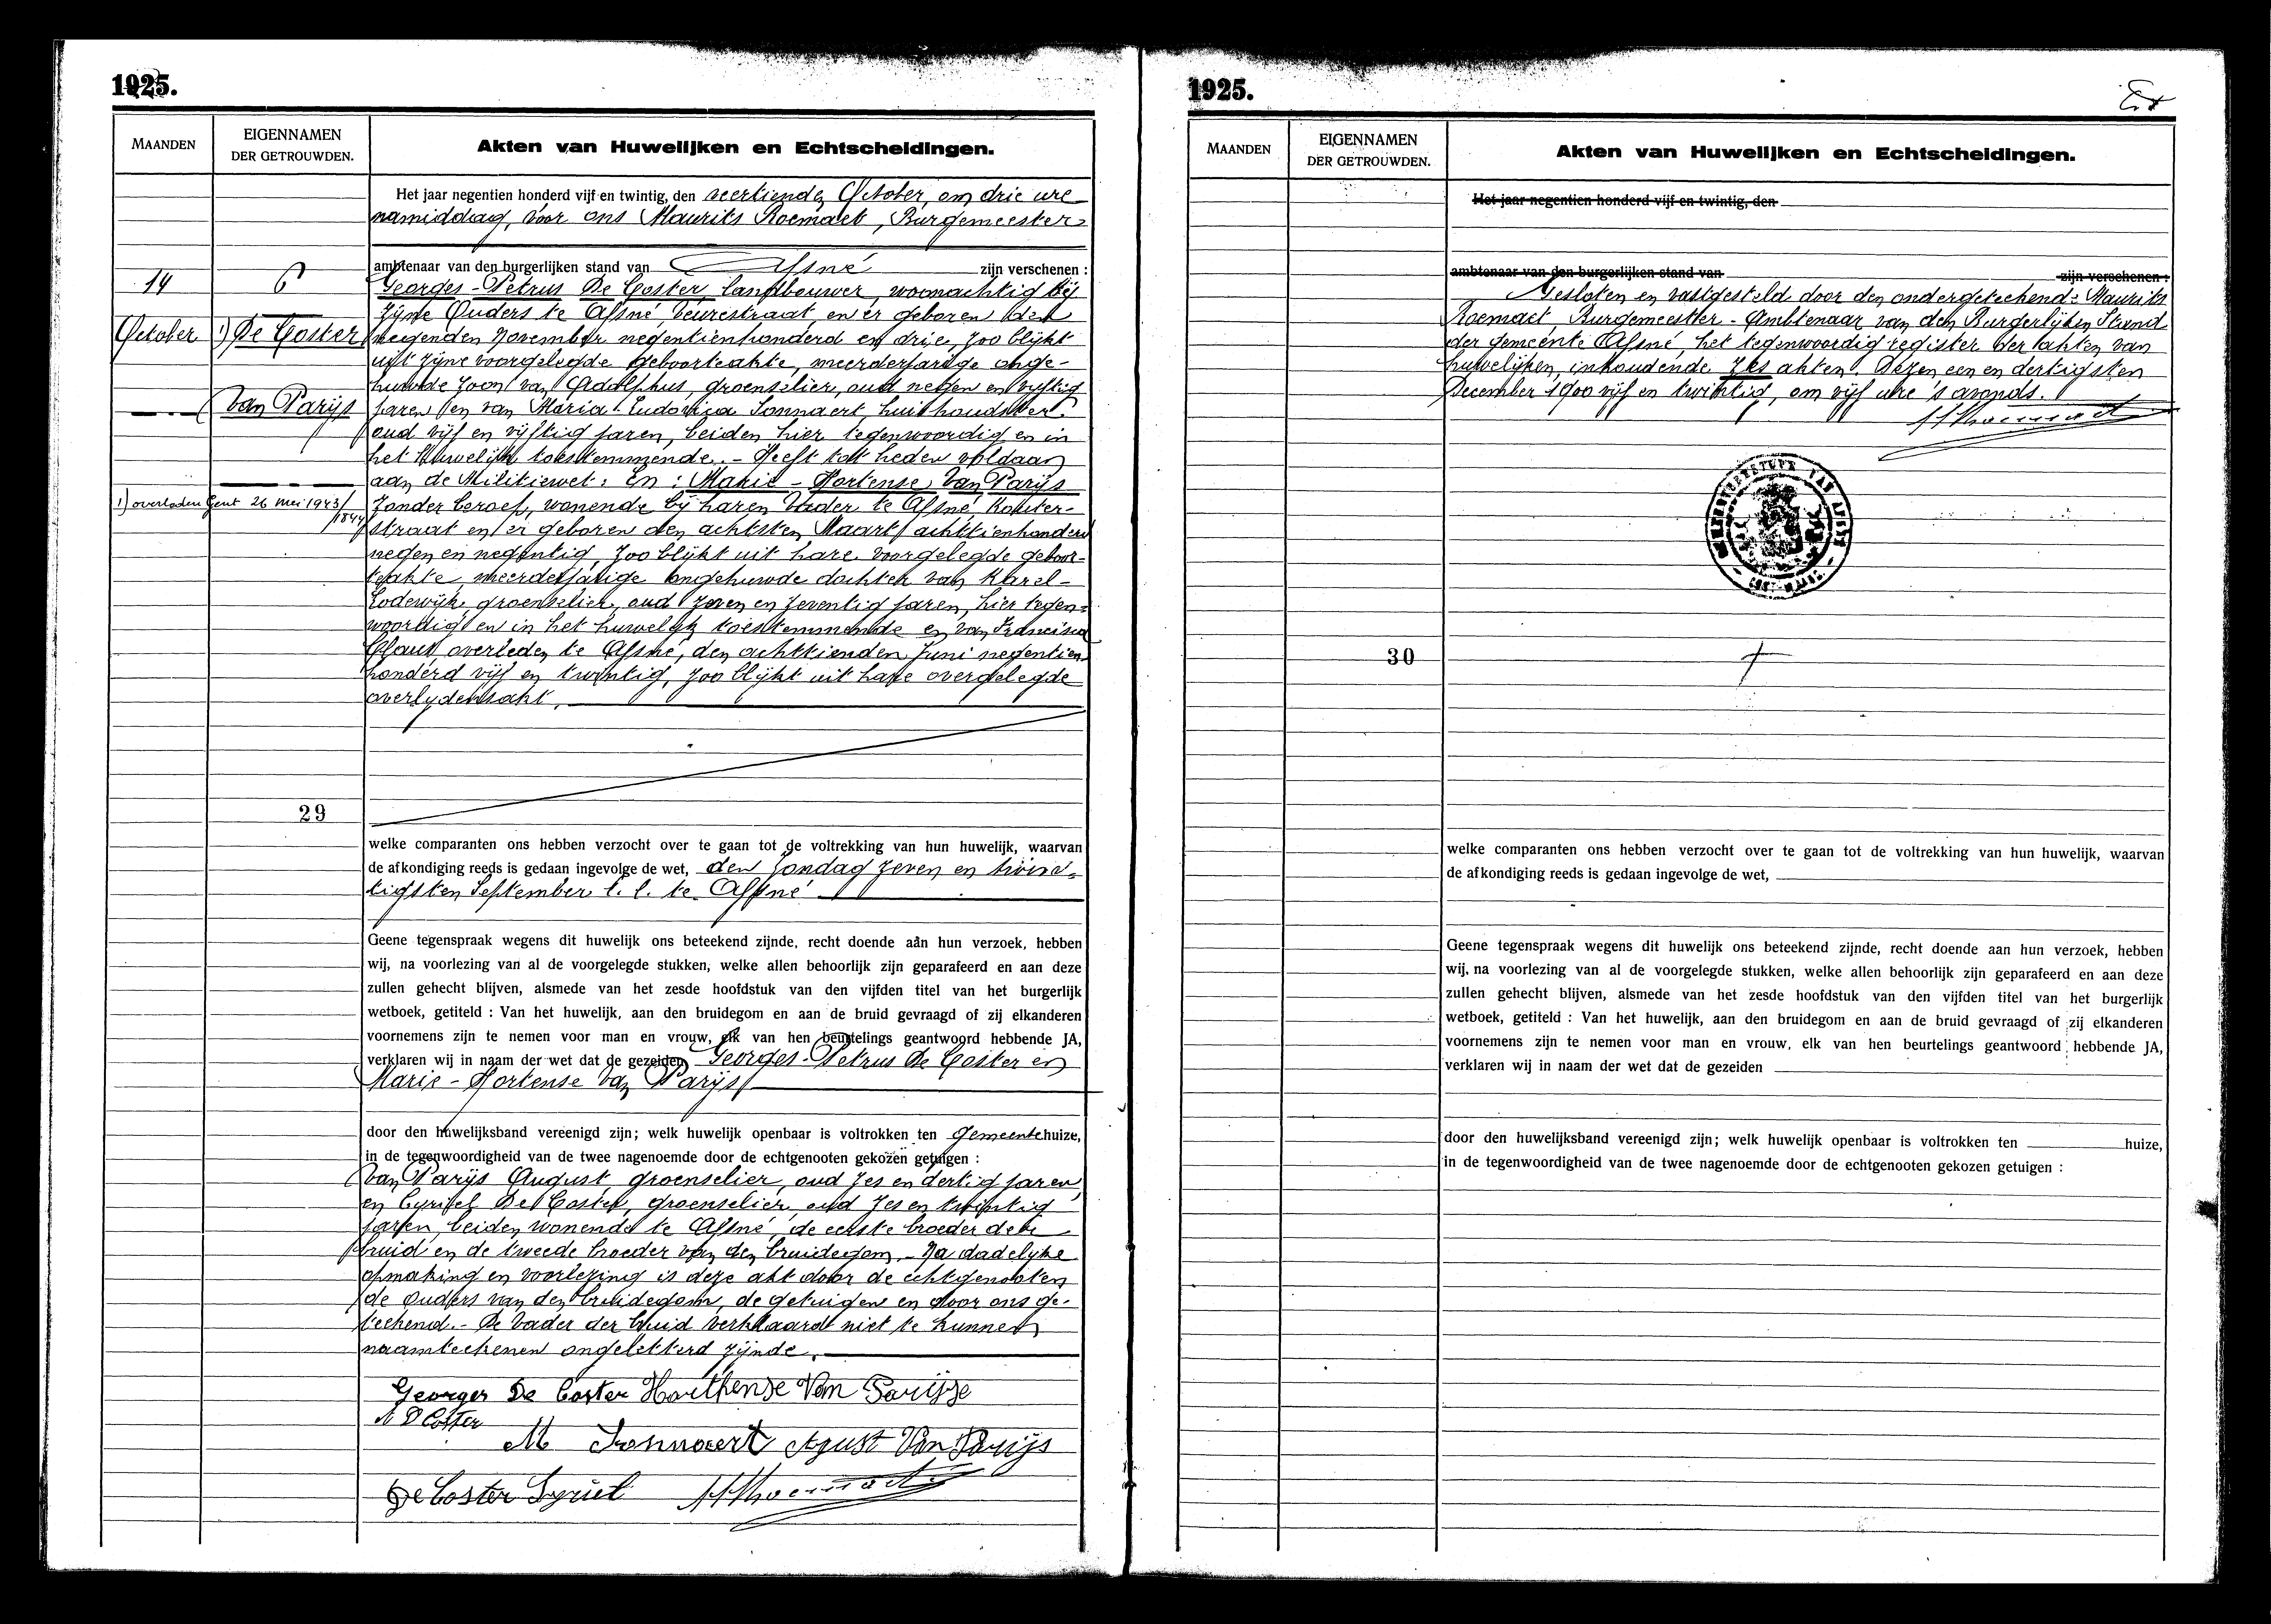 1925.
MAANDEN
EIGENNAMEN
DER GETROUWDEN.
Akten van Huwelijken en Echtscheidingen.
Het jaar negentien honderd vijf en twintig, den veertienden October, om drie ure
namiddag, voor ons Maurits Roemaet, Burgemeester
ambtenaar van den burgerlijken stand van Afsné zijn verschenen :
14
6
October
1) De Coster
Van Parijs
1) overleden Gent 26 Mei 1943/
1844
Georges-Petrus De Coster, landbouwer, woonachtig bij
zijne Ouders te Afsné Veurestraat, en er geboren den
negenden November negentienhonderd en drie, zoo blijkt
uit zijne voorgelegde geboorteakte, meerderjarige onge-
huwde zoon van Adolphus, groenselier, oud negen en vijftig
jaren en van Maria-Ludovica Sonnaert, huishoudster
oud vijf en vijftig jaren, beiden hier tegenwoordig en in
het huwelijk toestemmende. - Heeft tot heden voldaan
aan de Militiewet. En : Marie-Hortense Van Parijs
zonder beroep, wonende bij haren Vader te Afsné Kouter-
straat en er geboren den achtsten Maart achttienhonderd
negen en negentig, zoo blijkt uit hare voorgelegde geboor-
teakte, meerderjarige ongehuwde dochter van Karel-
Lodewijk, groenselier, oud zeven en zeventig jaren, hier tegen-
woordig en in het huwelijk toestemmende en van Francisca
Claus, overleden te Afsné, den achttienden Juni negentien-
honderd vijf en twintig, zoo blijkt uit hare overgelegde
overlydensakt.
29
welke comparanten ons hebben verzocht over te gaan tot de voltrekking van hun huwelijk, waarvan
de afkondiging reeds is gedaan ingevolge de wet, den Zondag zeven en twin-
tigsten September l. l. te Afsné
Geene tegenspraak wegens dit huwelijk ons beteekend zijnde, recht doende aan hun verzoek, hebben
wij, na voorlezing van al de voorgelegde stukken, welke allen behoorlijk zijn geparafeerd en aan deze
zullen gehecht blijven, alsmede van het zesde hoofdstuk van den vijfden titel van het burgerlijk
wetboek, getiteld : Van het huwelijk, aan den bruidegom en aan de bruid gevraagd of zij elkanderen
voornemens zijn te nemen voor man en vrouw, elk van hen beurtelings geantwoord hebbende JA,
verklaren wij in naam der wet dat de gezeiden Georges-Petrus De Coster en
Marie-Hortense Van Parijs
door den huwelijksband vereenigd zijn; welk huwelijk openbaar is voltrokken ten Gemeentehuize,
in de tegenwoordigheid van de twee nagenoemde door de echtgenooten gekozen getuigen :
Van Parijs August, groenselier, oud zes en dertig jaren,
en Cyriel De Coster, groenselier, oud zes en twintig
jaren, beiden wonende te Afsné, de eerste broeder der
bruid en de tweede broeder van den bruidegom. - Na dadelyke
opmaking en voorlezing is deze akt door de echtgenooten
de ouders van den bruidegom, de getuigen en door ons ge-
teekend. - De Vader der bruid verklaardt niet te kunnen
naamteekenen ongeletterd zijnde.
Georges De Coster Horthense Van Parijse
A D Coster
M Sonnaert Agust Van Parijs
De Coster Syriel MRoemaet
1925.
MAANDEN
EIGENNAMEN
DER GETROUWDEN.
Akten van Huwelijken en Echtscheidingen.
Het jaar negentien honderd vijf en twintig, den
ambtenaar van den burgerlijken stand van zijn verschenen :
Gesloten en vastgesteld door den ondergeteekend : Maurits
Roemaet, Burgemeester-Ambtenaar van den Burgerlijken Stand
der gemeente Afsné, het tegenwoordig register der akten van
huwelijken, inhoudende zes akten. Dezen een en dertigsten
December 1900 vijf en twintig, om vijf ure 's avonds.
MRoemaet
30
welke comparanten ons hebben verzocht over te gaan tot de voltrekking van hun huwelijk, waarvan
de afkondiging reeds is gedaan ingevolge de wet,
Geene tegenspraak wegens dit huwelijk ons beteekend zijnde, recht doende aan hun verzoek, hebben
wij, na voorlezing van al de voorgelegde stukken, welke allen behoorlijk zijn geparafeerd en aan deze
zullen gehecht blijven, alsmede van het zesde hoofdstuk van den vijfden titel van het burgerlijk
wetboek, getiteld : Van het huwelijk, aan den bruidegom en aan de bruid gevraagd of zij elkanderen
voornemens zijn te nemen voor man en vrouw, elk van hen beurtelings geantwoord hebbende JA,
verklaren wij in naam der wet dat de gezeiden
door den huwelijksband vereenigd zijn; welk huwelijk openbaar is voltrokken ten huize,
in de tegenwoordigheid van de twee nagenoemde door de echtgenooten gekozen getuigen :